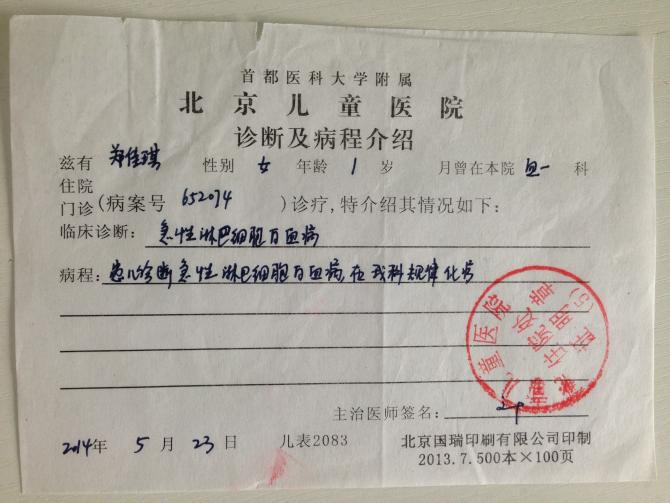 首都医科大学附属
北京儿童医院
诊断及病程介绍
兹有 郑佳琪 性别 女 年龄 1 岁 月曾在本院 血一 科
住院
门诊(病案号 652074 )诊疗,特介绍其情况如下:
临床诊断: 急性淋巴细胞白血病
病程: 患儿诊断急性淋巴细胞白血病,在我科规律化疗
主治医师签名:
2014年 5 月 23 日 儿表2083 北京国瑞印刷有限公司印制
2013.7.500本×100页
儿童医院